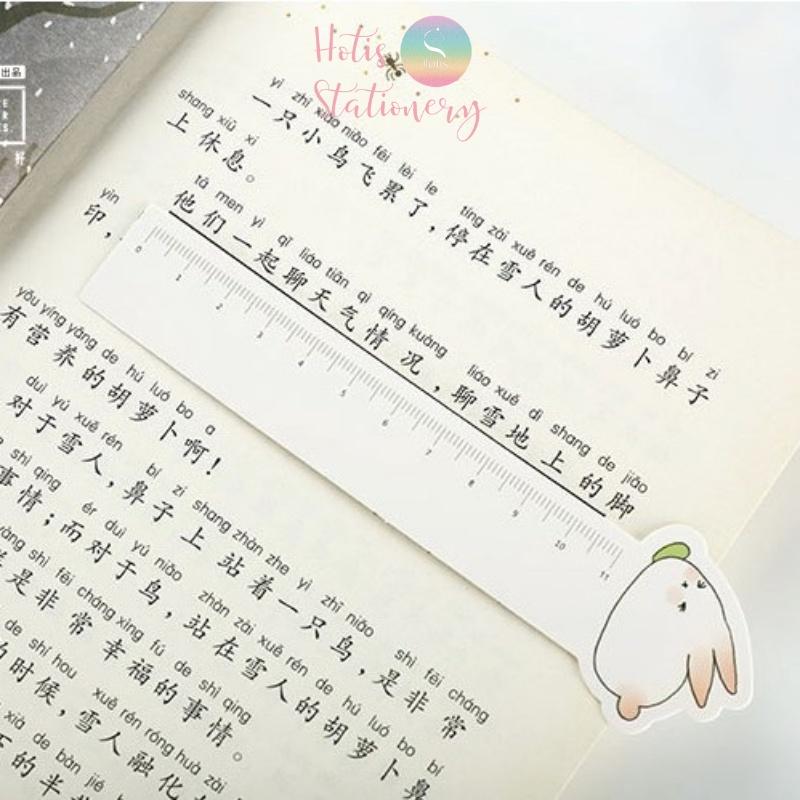 Hotis
Stationery
Hotis
出品
yì zhī xiǎo niǎo fēi lèi le tíng zài xuě rén de hú luó bo bí zi
一只小鸟飞累了，停在雪人的胡萝卜鼻子
shang xiū xi
上休息。
tā men yì qǐ liáo tiān qì qíng kuàng liáo xuě dì shang de jiǎo
他们一起聊天气情况，聊雪地上的脚
yìn
印，
0 1 2 3 4 5 6 7 8 9 10 11
yǒu yíng yǎng de hú luó bo a
有营养的胡萝卜啊！
duì yú xuě rén bí zi shang zhàn zhe yì zhī niǎo shì fēi cháng
对于雪人，鼻子上站着一只鸟，是非常
shì qing ér duì yú niǎo zhàn zài xuě rén de hú luó bo bí
事情；而对于鸟，站在雪人的胡萝卜鼻
yàng shì fēi cháng xìng fú de shì qing
样是非常幸福的事情。
de shí hou xuě rén róng huà zài
的时候，雪人融化在
xià de bàn jié
下的半